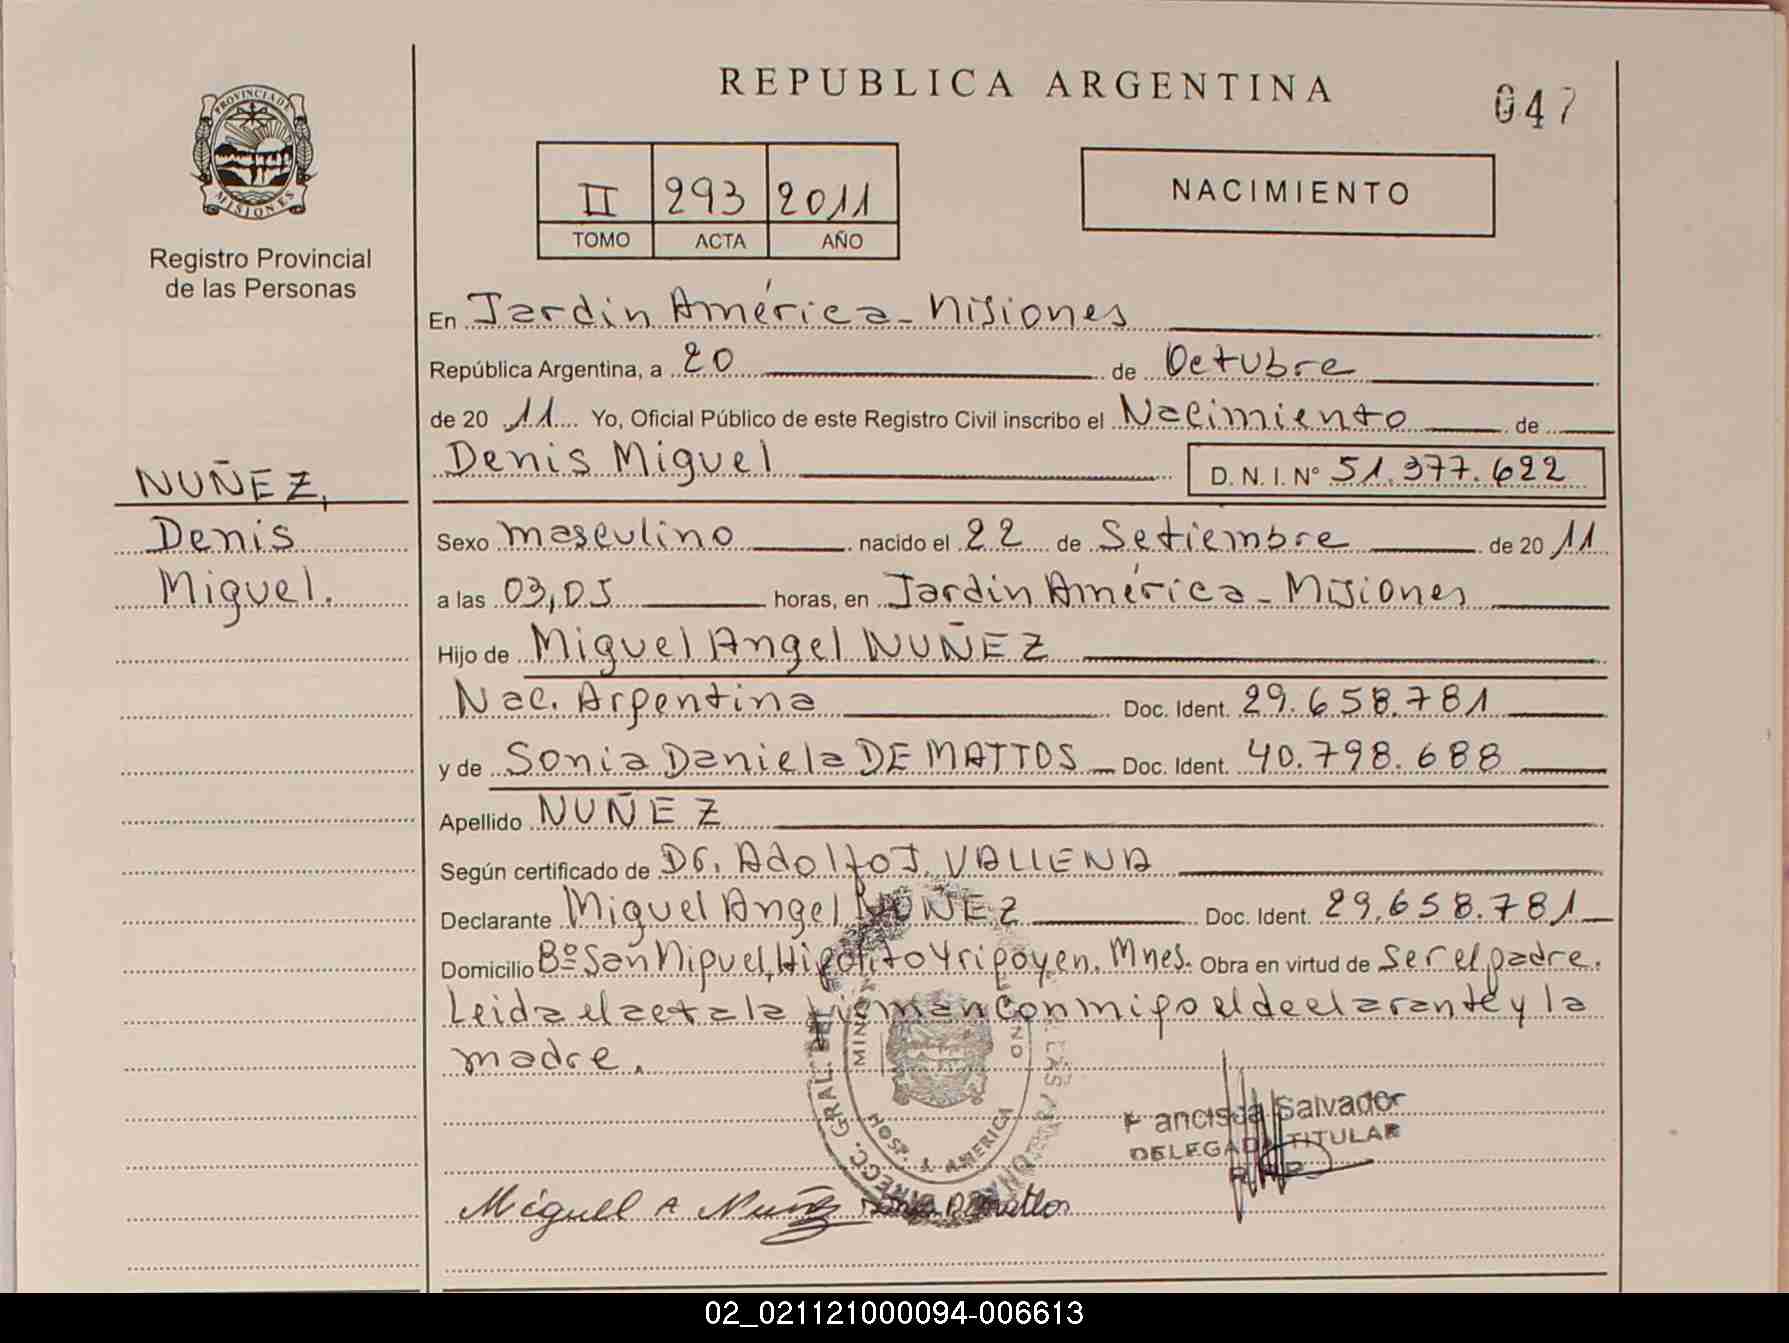 REPUBLICA ARGENTINA
047
PROVINCIA DE
MISIONES
Registro Provincial
de las Personas
II 293 2011
TOMO ACTA AÑO
NACIMIENTO
En Jardín América - Misiones
República Argentina, a 20 de Octubre
de 20 11 Yo, Oficial Público de este Registro Civil inscribo el Nacimiento de
Denis Miguel D. N. I. N° 51.377.622
NUÑEZ,
Denis
Miguel.
Sexo masculino nacido el 22 de Setiembre de 20 11
a las 03,05 horas, en Jardín América - Misiones
Hijo de Miguel Angel NUÑEZ
Nac. Argentina Doc. Ident. 29.658.781
y de Sonia Daniela DE MATTOS Doc. Ident. 40.798.688
Apellido NUÑEZ
Según certificado de Dr. Adolfo J. VALLENA
Declarante Miguel Angel NUÑEZ Doc. Ident. 29.658.781
Domicilio Bº San Miguel, Hipólito Yrigoyen. Mnes. Obra en virtud de ser el padre.
Leida el acta la firman conmigo el declarante y la
madre.
DIRECC. GRAL. DEL
HOSP. J. AMERICA
Francisca Salvador
DELEGADA TITULAR
R.P.P.
Miguel A Nuñez
02_021121000094-006613